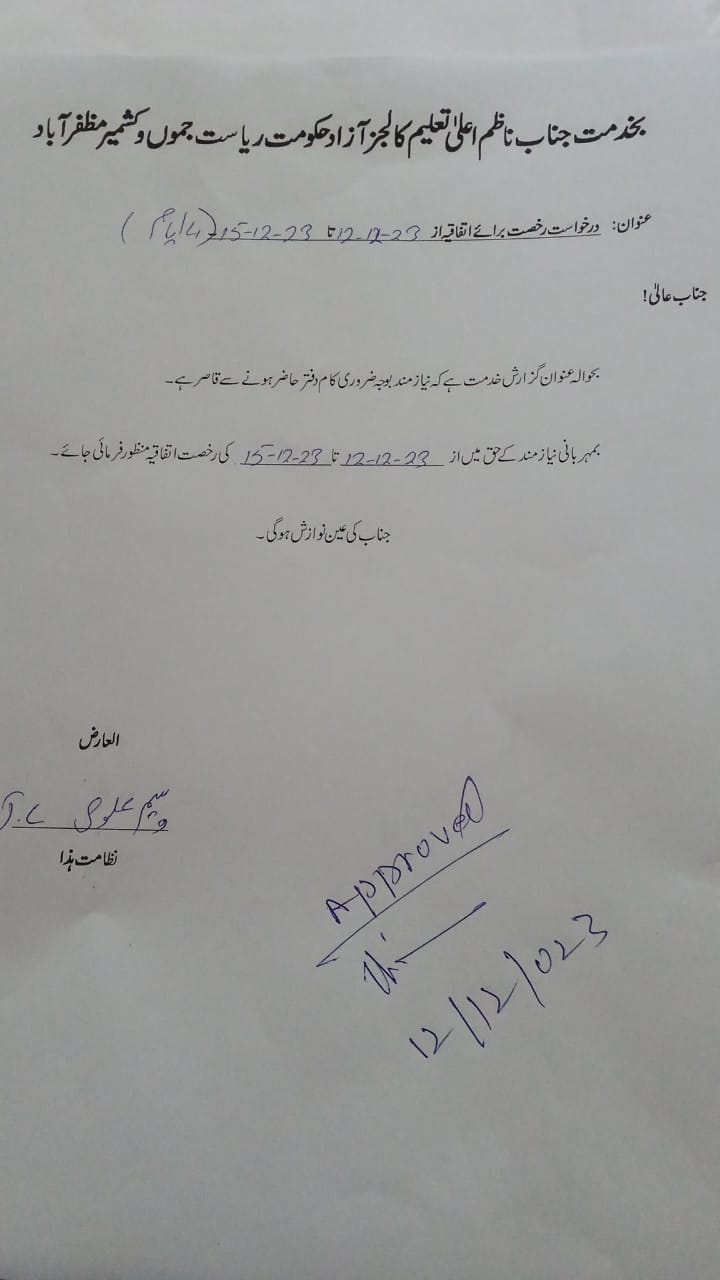 بخدمت جناب ناظم اعلیٰ تعلیم کالجز آزاد حکومت ریاست جموں و کشمیر مظفر آباد
عنوان: درخواست رخصت برائے اتفاقیہ از 12-12-23 تا 15-12-23 (4 ایام)
جناب عالیٰ!
بحوالہ عنوان گزارش خدمت ہے کہ نیاز مند بوجہ ضروری کام دفتر حاضر ہونے سے قاصر ہے۔
بمہربانی نیاز مند کے حق میں از 12-12-23 تا 15-12-23 کی رخصت اتفاقیہ منظور فرمائی جائے۔
جناب کی عین نوازش ہوگی۔
العارض
وسیم علوی J.C
نظامت ہذا
Approved
12/12/023